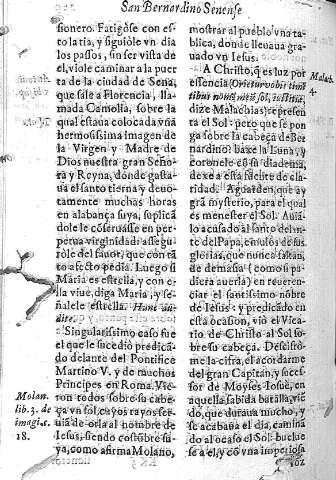 San Bernardino Senense
sionero. Fatigóse con es-
to la tia, y siguióle vn dia
los passos, sin ser vista de
el, viole caminar a la puer
ta de la ciudad de Sena,
que sale a Florencia, lla-
mada Camolia, sobre la
qual estaua colocada vna
hermosissima imagen de
la Virgen y Madre de
Dios nuestra gran Seño-
ra y Reyna, donde gasta-
ua el santo tierna y deuo-
tamente muchas horas
en alabança suya, suplicã
dole le cõseruasse en per-
petua virginidad: assegu
róle del fauor, que con tã
to afecto pedia. Luego si
Maria es estrella, y con e-
lla viue, diga Maria, y se-
ñalele estrella. Hanc au-
dite.
Singularissimo caso fue
el que le sucedió predicã
do delante del Pontifice
Martino V. y de muchos
Principes en Roma. Vie-
ron todos sobre su cabe
ça vn sol, cuyos rayos ser
uia de orla al nombre de
Iesus, siendo costũbre su-
ya, como afirma Molano,
Molan.
lib. 3. de
imagi. c.
18.
mostrar al pueblo vna ta-
blica, donde lleuaua gra-
uado vn Iesus.
A Christo, q̃ es luz por
essencia (Orietur vobis timẽ
tibus nomẽ meũ sol, iustitiæ,
dize Malachias) represen
ta el Sol: pero que se pon
ga sobre la cabeça de Ber
nardino: baxe la Luna, y
coronele cõ su diadema,
dexe a esta siesta de cla-
ridad. Aguarden, que ay
grã mysterio, para el qual
es menester el Sol. Auiã-
lo acusado al santo delan-
te del Papa, emulos de sus
glorias, que nunca faltan,
de demasia (como si pu
diera auerla) en reueren-
ciar el santissimo nõbre
de Iesus: y predicado en
esta ocasion, vió el Vica-
rio de Christo al Sol so-
bre su cabeça. Descifró-
me la cifra, el acordarme
del gran Capitan, y suces-
sor de Moyses Iosue, en
aquella sabida batalla, viẽ
do, que duraua mucho, y
se acabaua el dia, camina
do al ocaso el Sol: buelue
se a el, y cõ vna imperiosa
voz
Malach.
4.